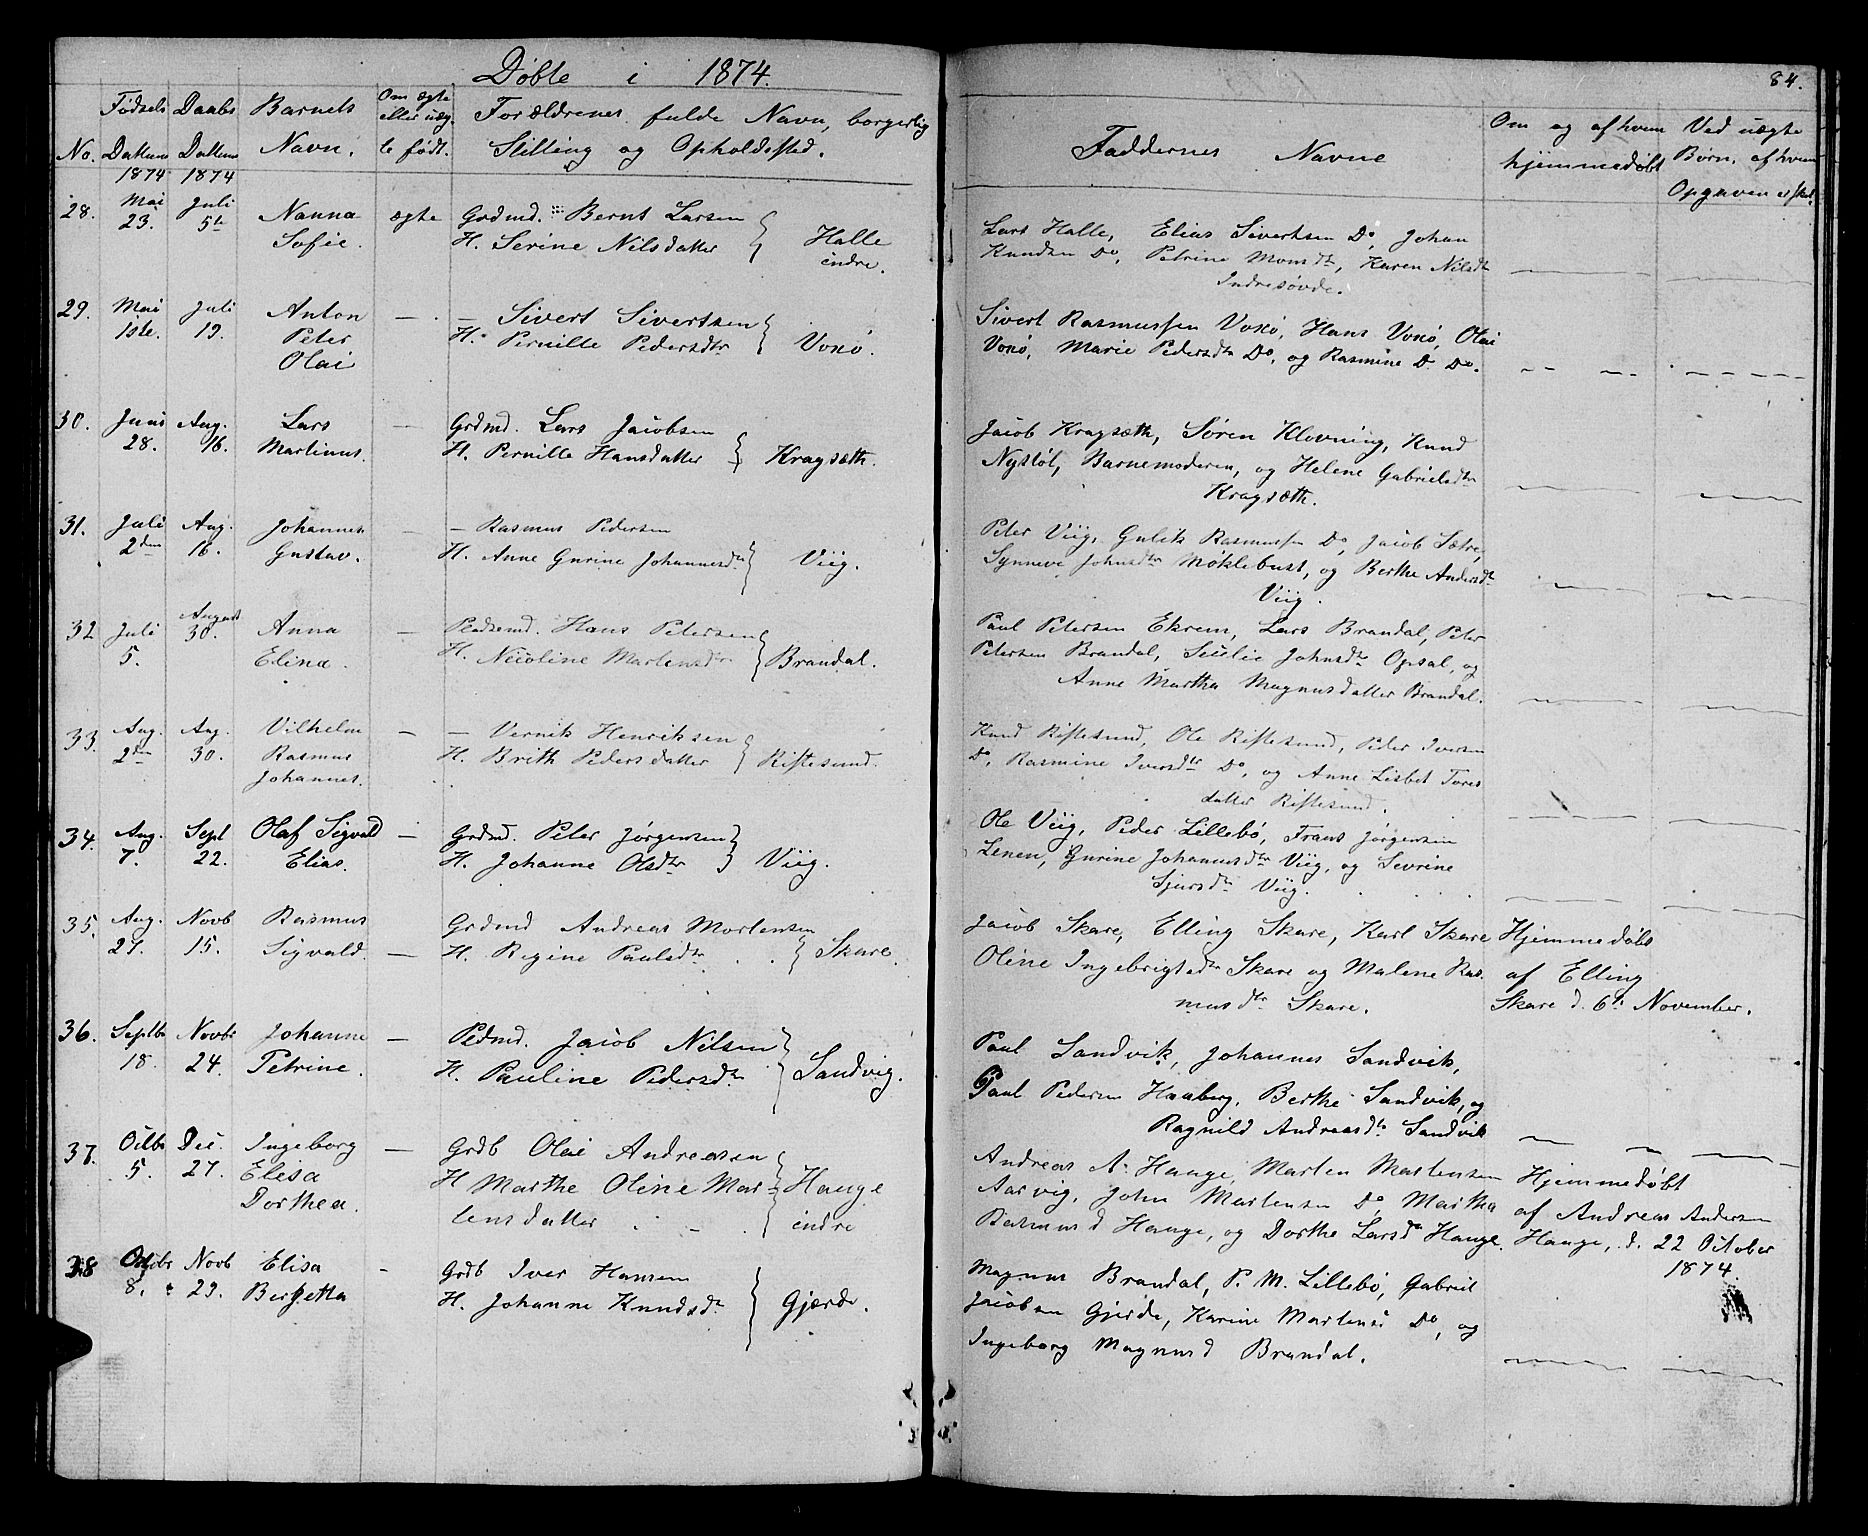 Døbte i 1874.
84.
No.
Fødsels Datum 1874
Daabs Datum 1874
Barnets Navn.
Om ægte eller uægte født.
Forældrenes fulde Navn, borgerlig
Stilling og Opholdssted.
Faddernes Navne
Om og af hvem
hjemmedøbt
Ved uægte
Børn, af hvem
Opgaven er skel.
28. Mai 23. Juli 5te Nanna ægte Grdmd. Bernt Larsen
Sofie. H. Serine Nilsdatter Halle indre.
Lars Halle, Elias Sivertsen Do, Johan
Knudsen Do, Petrine Monsdtr, Karen Nilsdtr
Indresøvde.
29. Mai 1ste. Juli 19. Anton — — Sivert Sivertsen
Peter H. Pernille Pedersdtr Voxø.
Olai
Sivert Rasmussen Voxø, Hans Voxø, Olai
Voxø, Marie Pedersdtr Do, og Rasmine D. Do.
30. Juni 28. Aug. 16. Lars — Grdmd. Lars Jacobsen
Martinus. H. Pernille Hansdatter Kragsæth.
Jacob Kragsæth, Søren Klovning, Knud
Nystøl, Barnemoderen, og Helene Gabrielsdtr
Kragsæth.
31. Juli 2den Aug. 16. Johannes — — Rasmus Pedersen
Gustav. H. Anne Gurine Johannesdtr Viig.
Peter Viig, Gulik Rasmussen Do, Jacob Sætre,
Synneve Johnsdtr Møklebust, og Berthe Andersdtr
Viig.
32 Juli 5. August 30. Anna — Pladsmd. Hans Petersen
Elina. H. Nicoline Martensdtr Brandal.
Paul Petersen Ekrem, Lars Brandal, Peter
Petersen Brandal, Secilie Johnsdtr Opsal, og
Anne Martha Magnusdatter Brandal.
33. Aug. 2den Aug. 30. Vilhelm — — Vernik Henriksen
Rasmus H. Brith Pedersdatter Riftesund.
Johannes.
Knud Riftesund, Ole Riftesund, Peder Iversen
Do, Rasmine Iversdtr Do, og Anne Lisbet Tores
datter Riftesund.
34. Aug. 7. Sept 22. Olaf Sigvald — Grdmd. Peter Jørgensen
Elias. H. Johanne Olsdtr Viig.
Ole Viig, Peder Lillebø, Frans Jørgensen
Lenen, Gurine Johannesdtr Viig, og Sevrine
Sjursdtr Viig.
35. Aug. 27. Novb 15. Rasmus Grdmd Andreas Mortensen
Sigvald. — H. Regine Paulsdtr Skare.
Jacob Skare, Elling Skare, Karl Skare
Oline Ingebrigtsdtr Skare og Malene Ras.
musdtr Skare.
Hjemmedøbt
af Elling
Skare d. 6te November.
36. Septbr 18. Novbr 24. Johanne — Pdmd. Jacob Nilsen
Petrine. H. Pauline Pedersdtr Sandvig.
Paul Sandvik, Johannes Sandvik,
Paul Pedersen Haaberg, Berthe Sandvik, og
Ragnild Andreasdtr Sandvik
37. Octbr 5. Dec. 27. Ingeborg — Grdb Olai Andreasen
Elisa H Marthe Oline Mar-
Dorthea. tensdatter Hauge indre
Andreas A. Hauge, Marten Martensen
Aarvig, John Martensen Do, Martha
Rasmusd Hauge, og Dorthe Larsdtr Hauge.
Hjemmedøbt
af Andreas Andersen
Hauge, d. 22 October
1874.
38 Octbr 8. Novb 29. Elisa - Grdb Iver Hansen
Bergetta H. Johanne Knudsdtr Gjærde.
Magnus Brandal, P. M. Lillebø, Gabriel
Jacobsen Gjerde, Karine Martens Do, og
Ingeborg Magnusd Brandal.